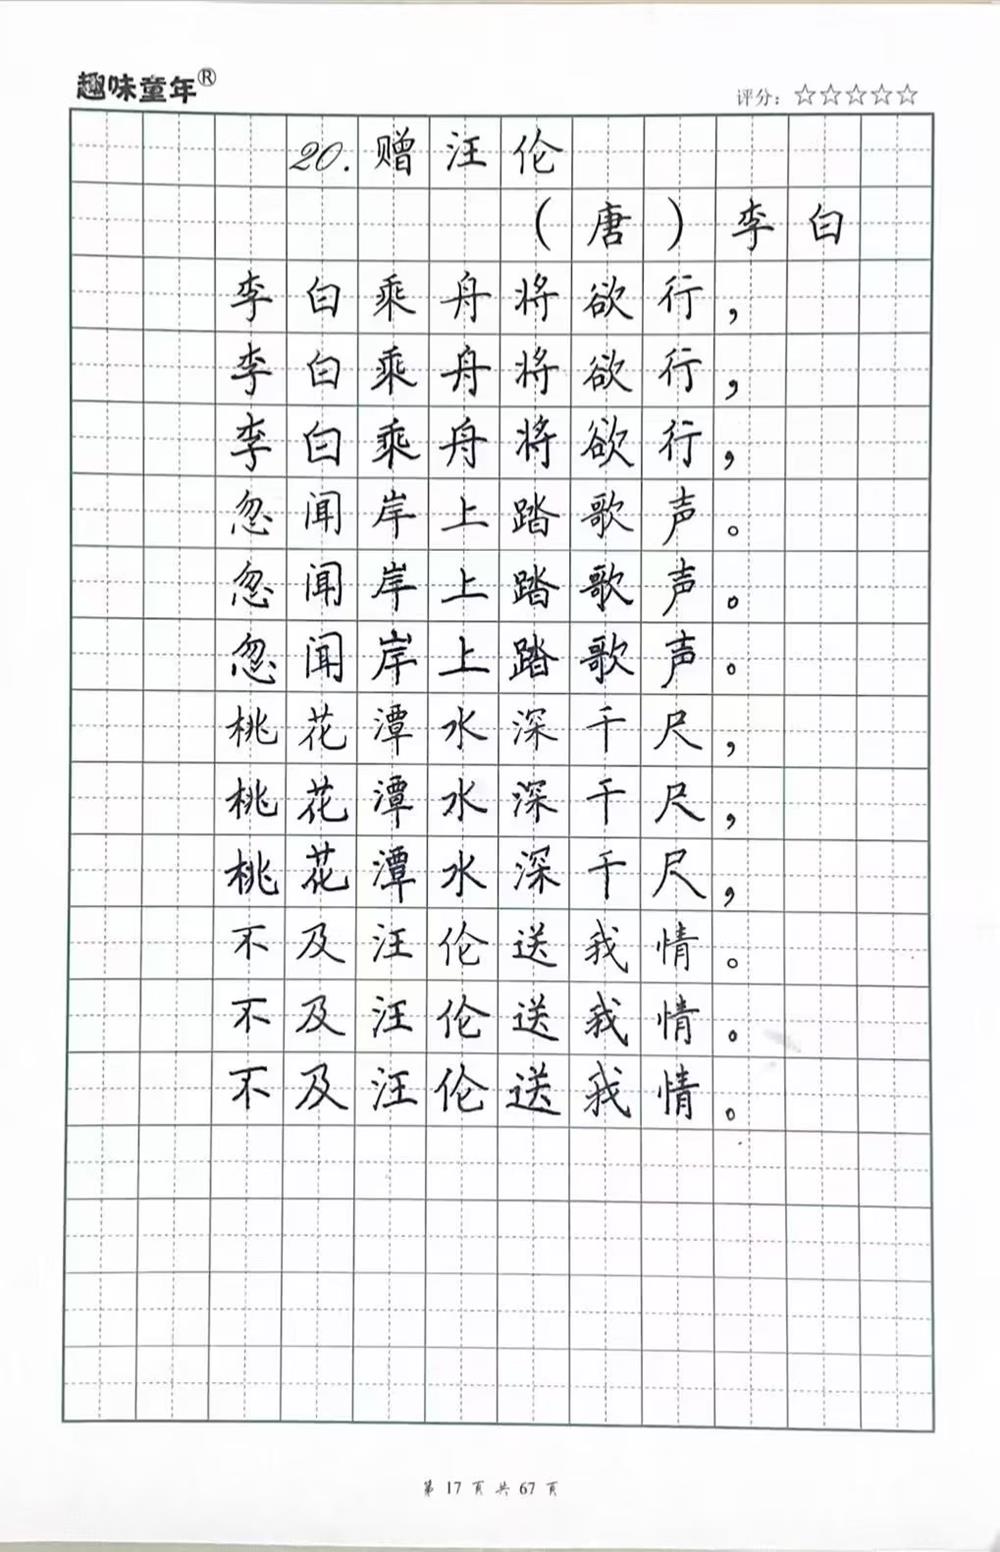 趣味童年®
评分：☆☆☆☆☆
20.赠汪伦
（唐）李白
李白乘舟将欲行，
李白乘舟将欲行，
李白乘舟将欲行，
忽闻岸上踏歌声。
忽闻岸上踏歌声。
忽闻岸上踏歌声。
桃花潭水深千尺，
桃花潭水深千尺，
桃花潭水深千尺，
不及汪伦送我情。
不及汪伦送我情。
不及汪伦送我情。
第 17 页 共 67 页